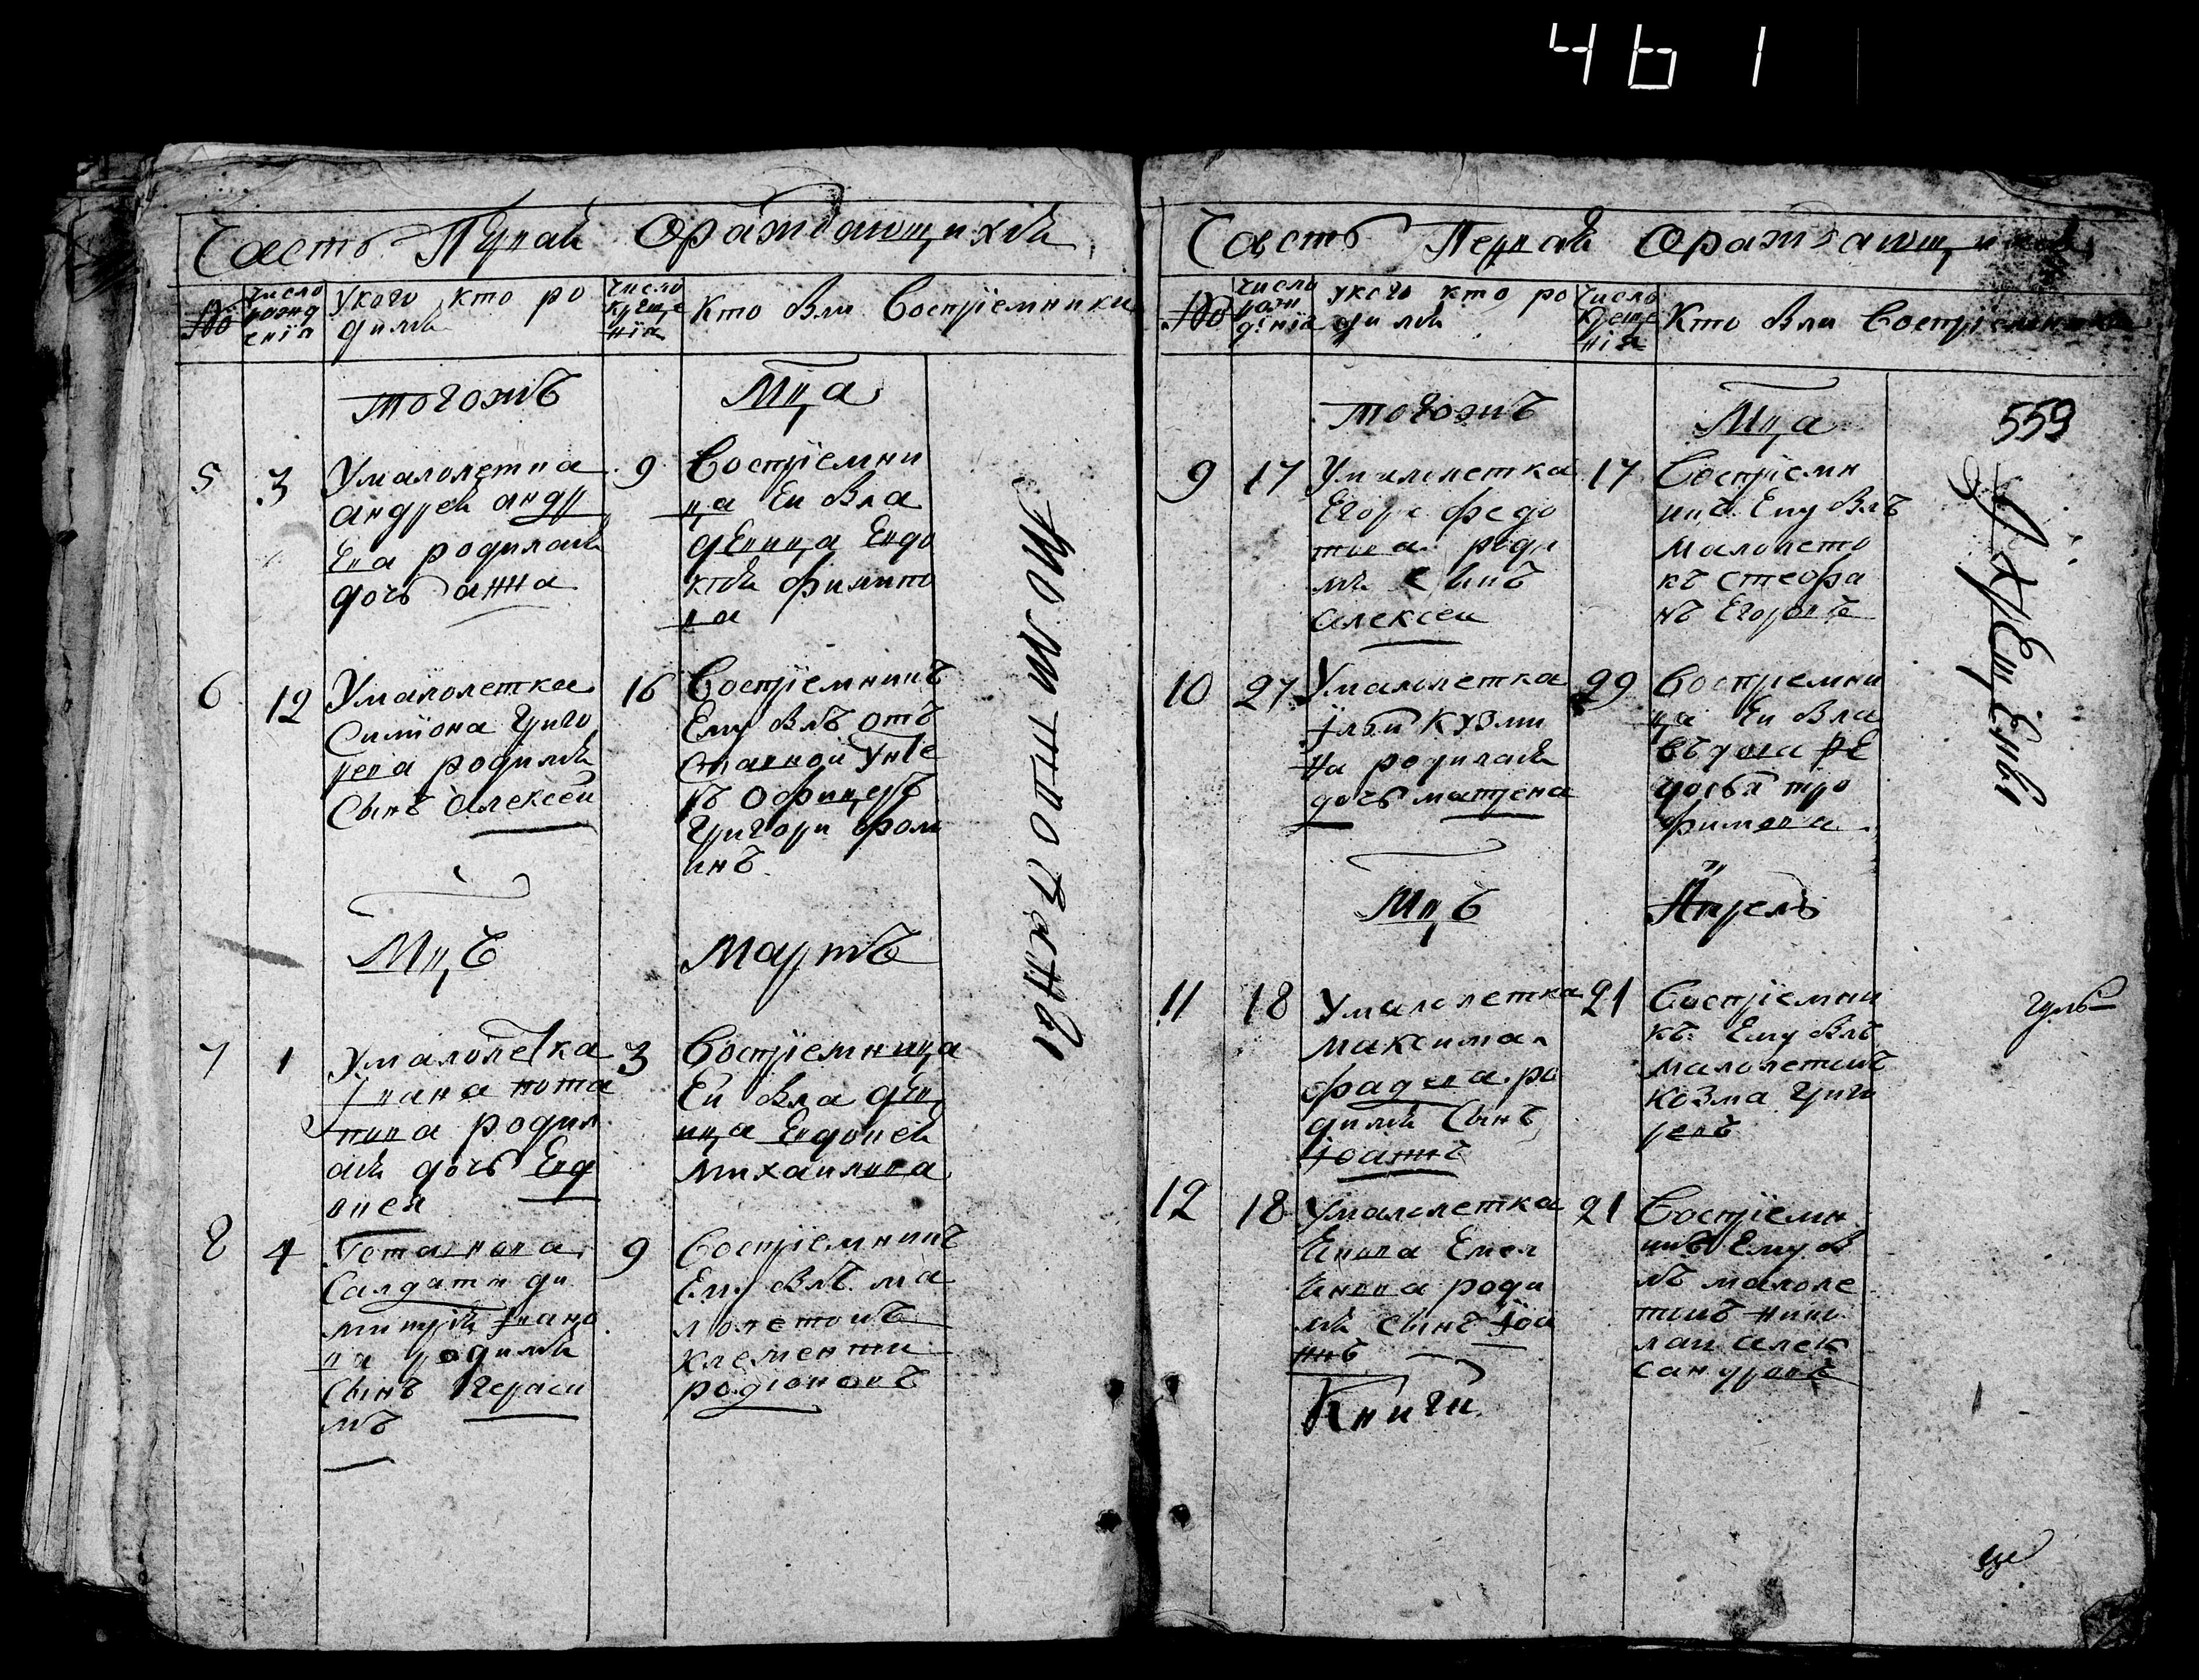 461
Часть Первай Ораждающихся
№
число рожд енїя
У кого кто ро дился
число креще нїя
Кто были Восприемники
тогожъ
Мца
5
3
У малолетка
андрея андр
ева родилася
дочь анна
9
Восприемни
ца Еи была
девица Евдо
кия филипо
ва
6
12
У малолетка
Симиона Григо
рева родился
Сынъ Алексеи
16
Восприемникъ
Ему былъ от
ставной Унте
ръ Офицеръ
Григори фом
инъ
Мцъ
Мартъ
7
1
У малолетка
Iвана пота
пива родил
ася дочь Евд
окея
3
Восприемница
Еи была деви
ца Евдокея
михаилова
8
4
Салдата ди
митрия Iвано
ва родился
Сынъ Гераси
мъ
9
Восприемникъ
Ему былъ ма
лолетокъ
клементи
родiоновъ
Часть Первай Ораждающихся
№
число рожи денїя
у кого кто ро дился
Число креще нiя
Кто были Восприемники
559
тогожъ
Мца
9
17
У малолетка
Егора федо
това роди
лся Сынъ
Алексеи
17
Восприемн
икъ Ему былъ
малолето
къ стефа
нъ Егоровъ
10
27
У малолетка
Iльи Кузми
на родилася
дочь матрена
29
Восприемни
ца Еи была
въдова фе
досья тро
фимова
Мцъ
Апрель
11
18
У малолетка
максима
фадева ро
дился Сынъ
Iоаннъ
21
Восприемни
къ Ему былъ
малолетокъ
козма григо
ревъ
12
18
У малолетка
Емел
янова роди
лся сынъ Iоа
ннъ
21
Восприемн
икъ Ему бы
лъ малоле
токъ нико
лаи алек
сандровъ
Книги